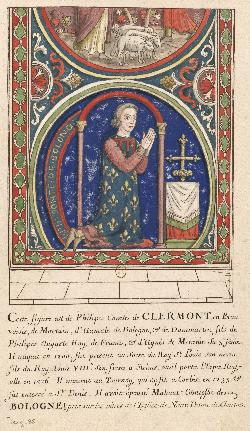 CONTE DE BOLONE
Cette figure est de Philipes Comte de CLERMONT en Beau
voisis, de Mortain, d'Aumale de Bologne, et de Dammartin, fils de
Philipes Auguste Roy de France, et d'Agnès de Meranie sa 3. femme
Il naquit en 1200, fut present au Sacre du Roy St Louis son neveu
fils du Roy Louis VIII. son frere a Reims, ou il porta l'Epée Roya-
le en 1226. Il mourut au Tournoy qui se fit a Corbie en 1233. et
fut enterré a St Denis. Il avoit epousé Mahaut Comtesse de
BOLOGNE; peint sur les vitres de l'Eglise de Notre Dame de Chartres.